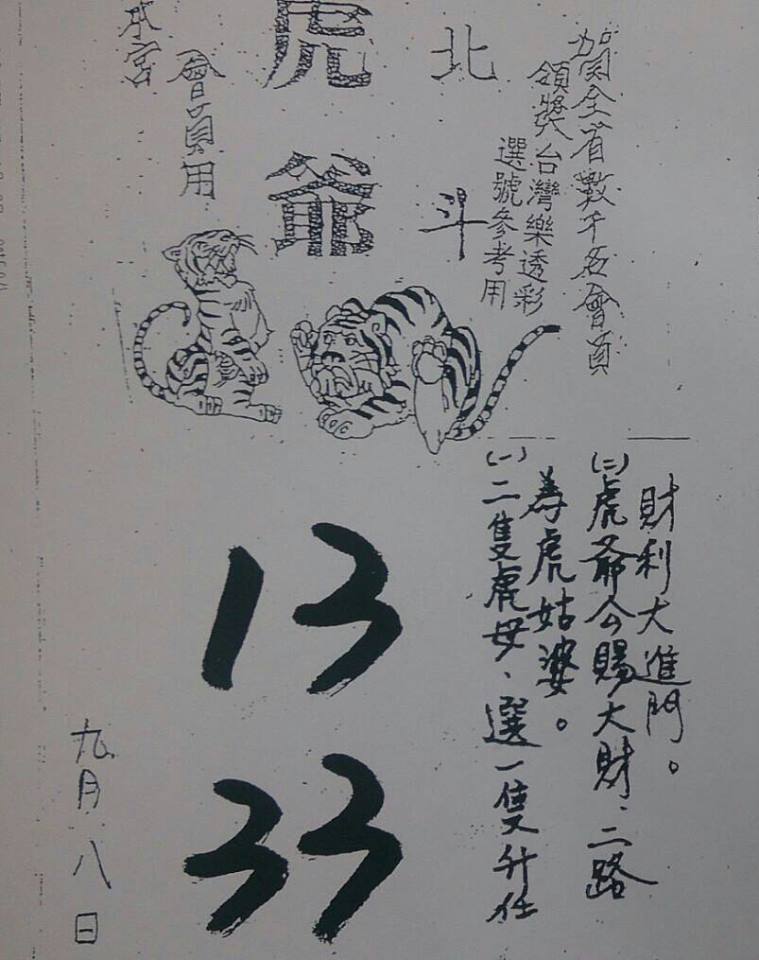 賀全省數千名會員
領獎台灣樂透彩
選號參考用
北斗
虎爺
會員用
本宮
(一)二隻虎母、選一隻升任
為虎姑婆。
(二)虎爺公賜大財、二路
財利大進門。
13
33
九月八日